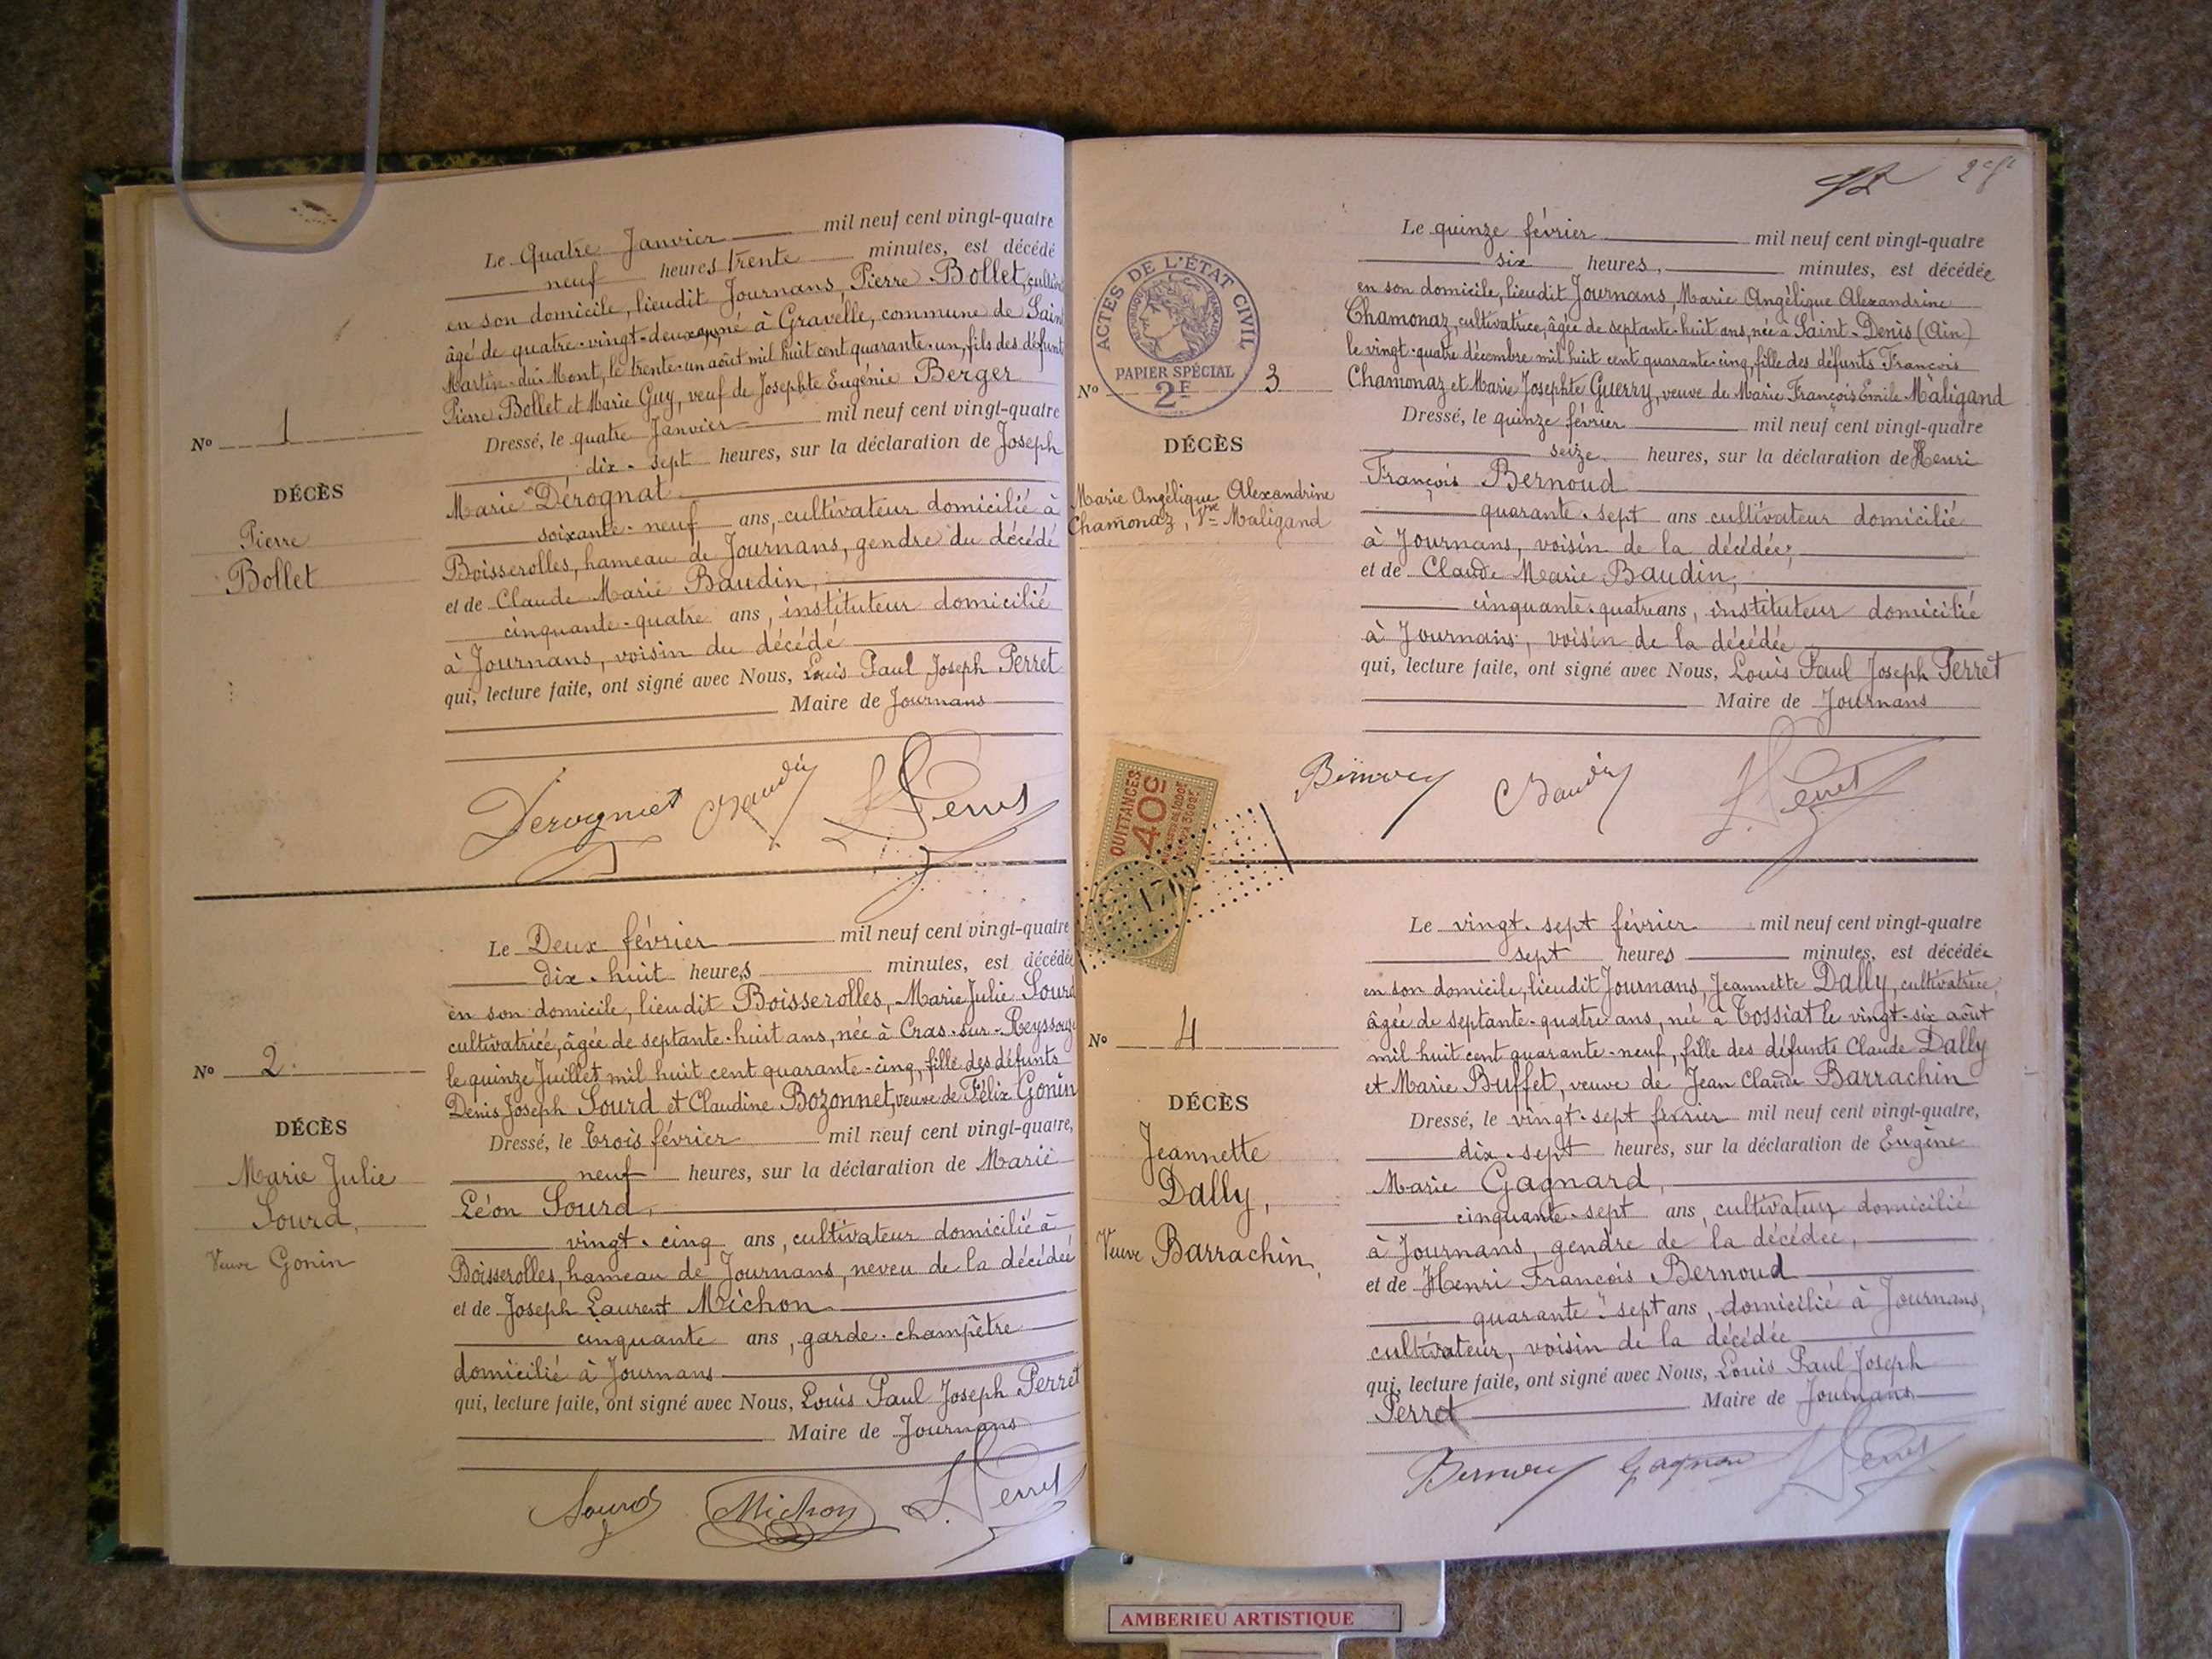 Le Quatre Janvier mil neuf cent vingt-quatre
neuf heures trente minutes, est décédé
en son domicile, lieudit Journans, Pierre Bollet,
âgé de quatre-vingt-deux ans, né à Gravelle, commune de Saint
Martin-du-Mont, le trente-un août mil huit cent quarante-un, fils des défunts
Pierre Bollet et Marie Guy, veuf de Josephte Eugénie Berger
Dressé, le quatre Janvier mil neuf cent vingt-quatre
dix-sept heures, sur la déclaration de Joseph
Marie Dérognat
soixante-neuf ans, cultivateur domicilié à
Boisserolles, hameau de Journans, gendre du décédé
et de Claude Marie Baudin,
cinquante-quatre ans, instituteur domicilié
à Journans, voisin du décédé
qui, lecture faite, ont signé avec Nous, Louis Paul Joseph Perret
Maire de Journans
No 1
DÉCÈS
Pierre
Bollet
Baudin Perret
Le Deux février mil neuf cent vingt-quatre
dix-huit heures minutes, est décédée
en son domicile, lieudit Boisserolles, Marie Julie Sourd
cultivatrice, âgée de septante-huit ans, née à Cras-sur-Reyssouze
le quinze Juillet mil huit cent quarante-cinq, fille des défunts
Denis Joseph Sourd et Claudine Bozonnet, veuve de Félix Gonin
Dressé, le Trois février mil neuf cent vingt-quatre,
neuf heures, sur la déclaration de Marie
Léon Sourd,
vingt-cinq ans, cultivateur domicilié à
Boisserolles, hameau de Journans, neveu de la décédée
et de Joseph Laurent Michon
cinquante ans, garde-champêtre
domicilié à Journans
qui, lecture faite, ont signé avec Nous, Louis Paul Joseph Perret
Maire de Journans
No 2.
DÉCÈS
Marie Julie
Sourd,
Veuve Gonin
Sourd Michon L. Perret
Le quinze février mil neuf cent vingt-quatre
six heures, minutes, est décédée
en son domicile, lieudit Journans, Marie Angélique Alexandrine
Chamonaz, cultivatrice, âgée de septante-huit ans, née à Saint-Denis (Ain)
le vingt-quatre décembre mil huit cent quarante-cinq, fille des défunts François
Chamonaz et Marie Josephte Guerry, veuve de Marie François Emile Maligand
Dressé, le quinze février mil neuf cent vingt-quatre
seize heures, sur la déclaration de Henri
François Bernoud
quarante-sept ans cultivateur domicilié
à Journans, voisin de la décédée,
et de Claude Marie Baudin,
cinquante-quatre ans, instituteur domicilié
à Journans, voisin de la décédée
qui, lecture faite, ont signé avec Nous, Louis Paul Joseph Perret
Maire de Journans
ACTES DE L'ÉTAT CIVIL
RÉPUBLIQUE FRANÇAISE
PAPIER SPÉCIAL
2F
No 3
DÉCÈS
Marie Angélique Alexandrine
Chamonaz, Vve Maligand
Baudin Perret
QUITTANCES
40c
Le vingt-sept février mil neuf cent vingt-quatre
sept heures minutes, est décédée
en son domicile, lieudit Journans, Jeannette Dally, cultivatrice,
âgée de septante-quatre ans, née à Tossiat le vingt-six août
mil huit cent quarante-neuf, fille des défunts Claude Dally
et Marie Buffet, veuve de Jean Claude Barrachin
Dressé, le vingt-sept février mil neuf cent vingt-quatre,
dix-sept heures, sur la déclaration de Eugène
Marie Gagnard,
cinquante-sept ans, cultivateur domicilié
à Journans, gendre de la décédée,
et de Henri François Bernoud
quarante-sept ans, domicilié à Journans,
cultivateur, voisin de la décédée
qui, lecture faite, ont signé avec Nous, Louis Paul Joseph
Perret Maire de Journans
No 4
DÉCÈS
Jeannette
Dally,
Veuve Barrachin,
Perret
AMBERIEU ARTISTIQUE